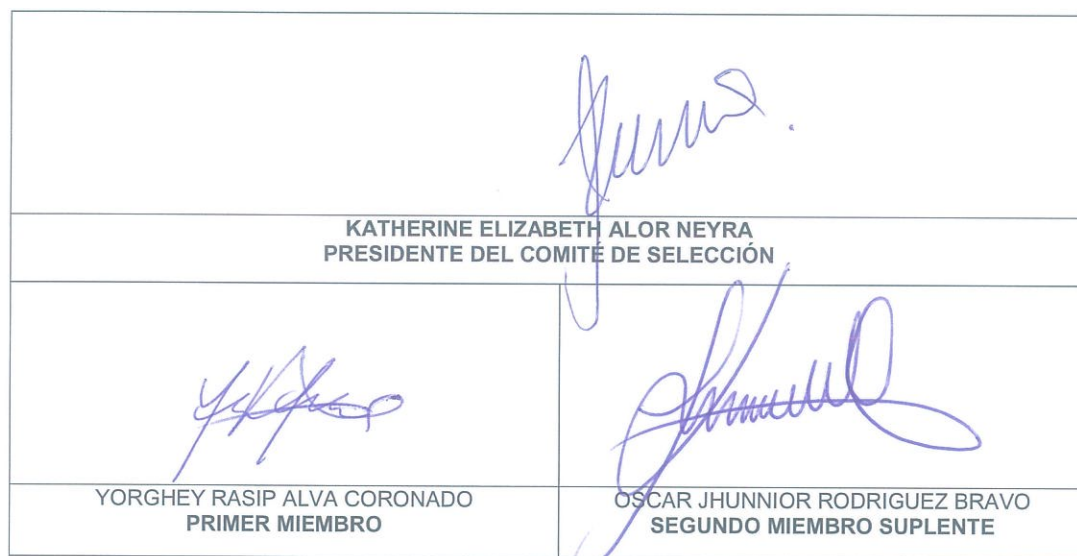 KATHERINE ELIZABETH ALOR NEYRA
PRESIDENTE DEL COMITÉ DE SELECCIÓN
YORGHEY RASIP ALVA CORONADO
PRIMER MIEMBRO
OSCAR JHUNNIOR RODRIGUEZ BRAVO
SEGUNDO MIEMBRO SUPLENTE